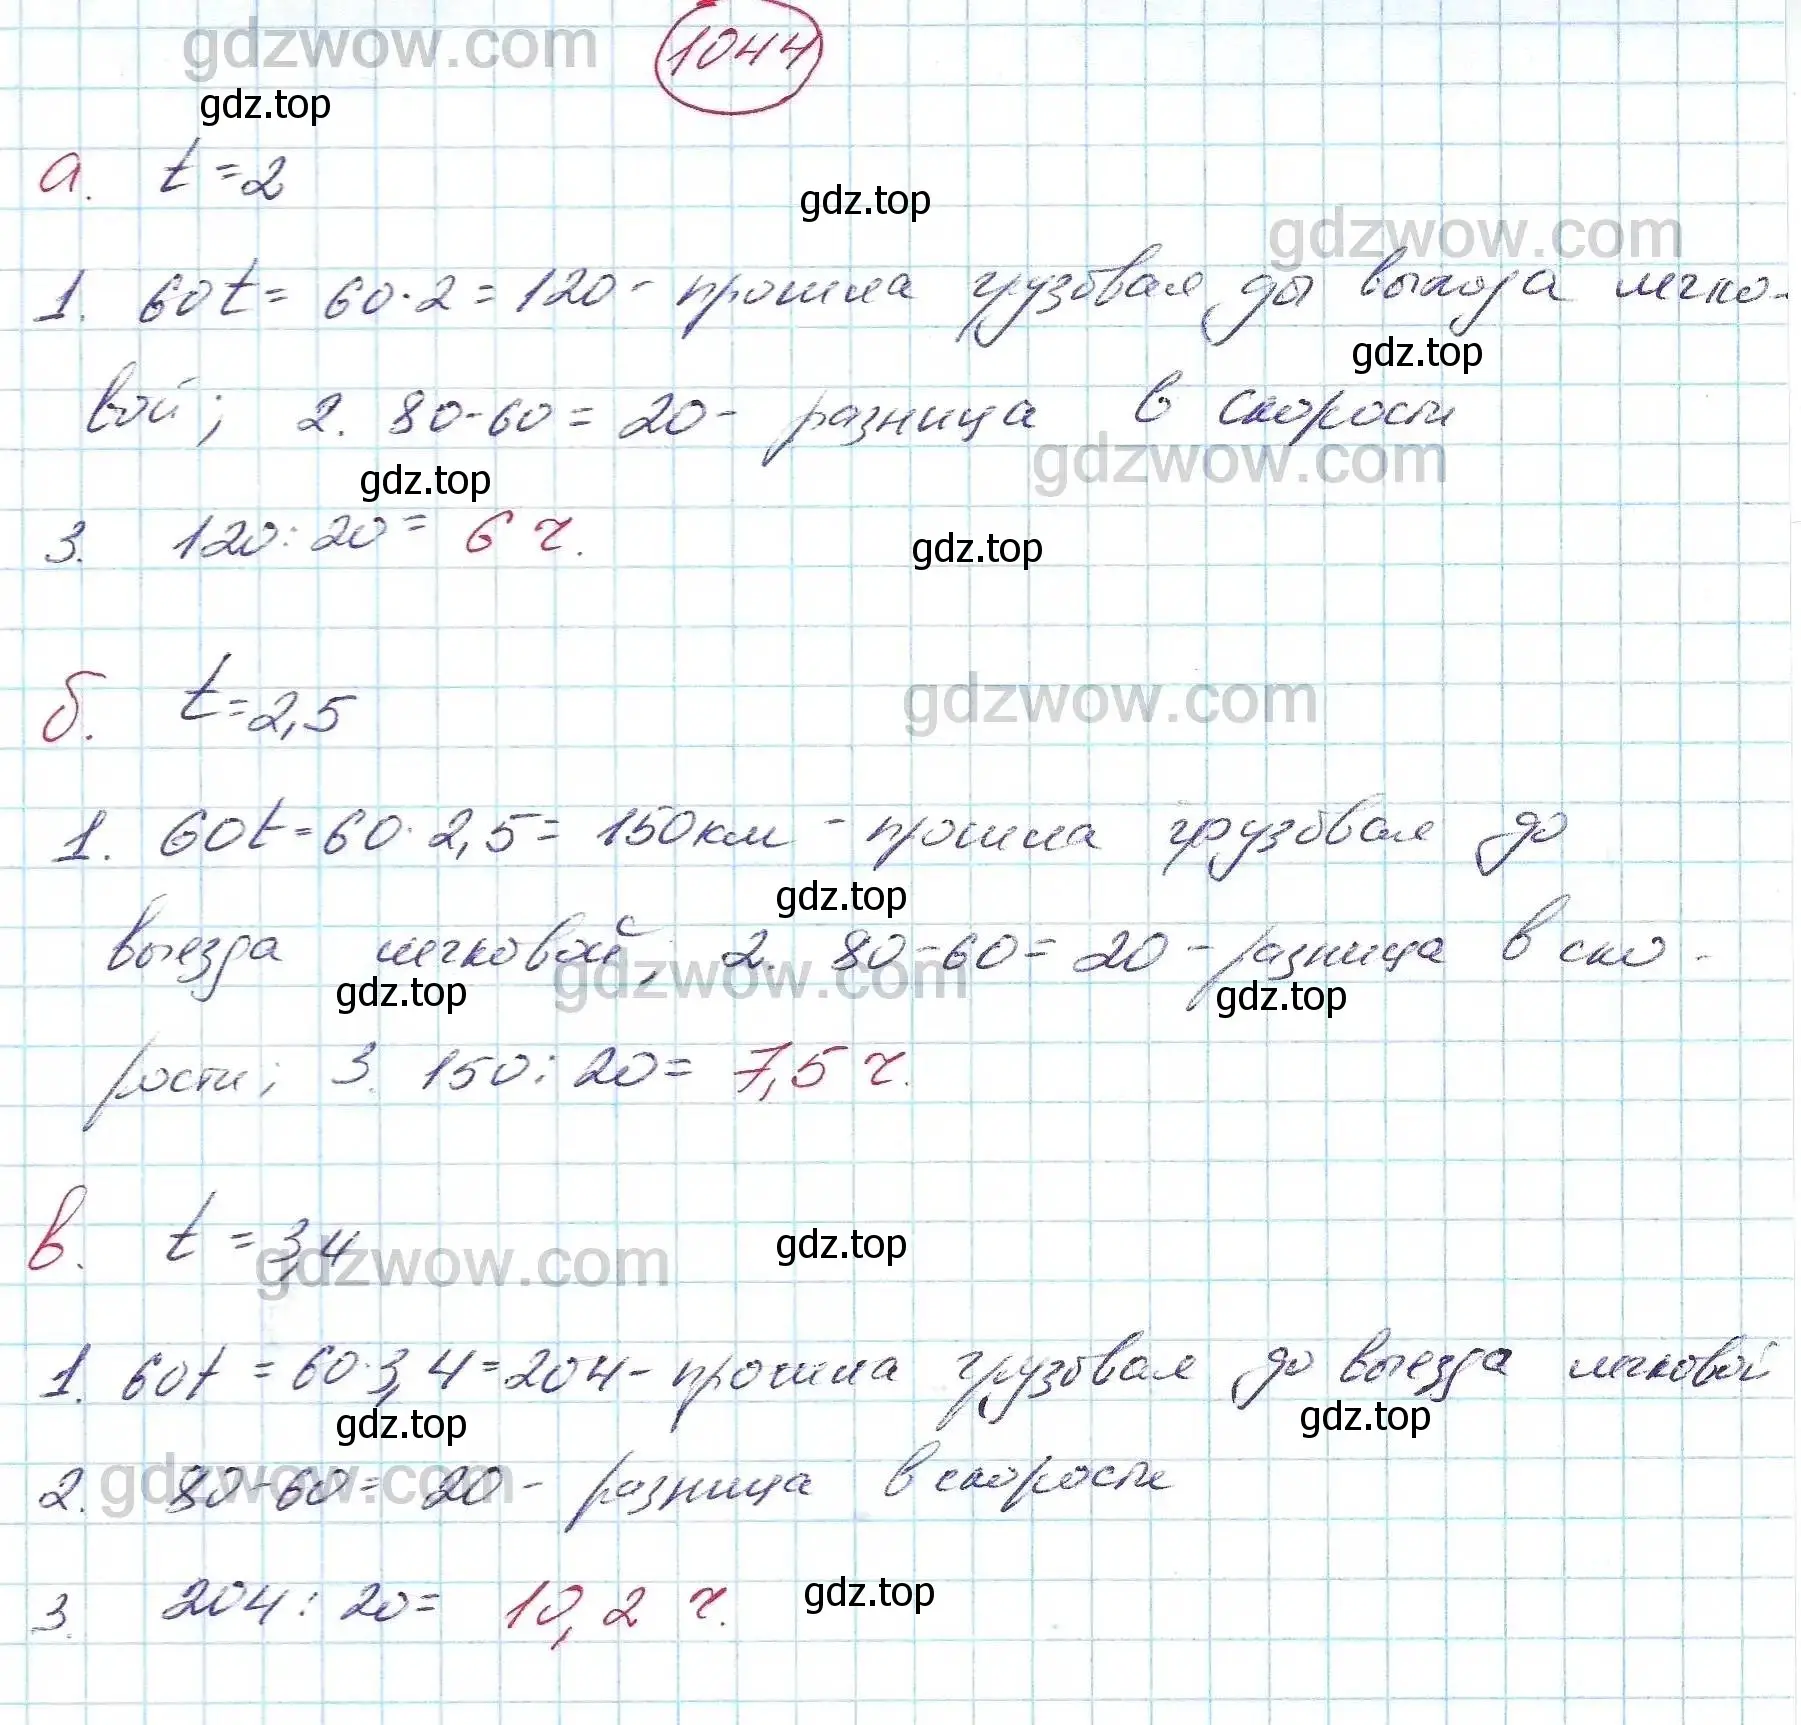 gdzwow.com
1044
gdz.top
а. t = 2
gdz.top
gdzwow.com
1. 60t = 60·2 = 120 - прошла грузовая ды выхода легко-
gdz.top
вой; 2. 80-60 = 20 - разница в скорости
gdzwow.com
gdz.top
3. 120:20 = 6 ч.
gdz.top
б. t = 2,5
gdzwow.com
1. 60t = 60·2,5 = 150км - прошла грузовая до
gdz.top
выезда легковой; 2. 80-60 = 20 - разница в ско-
gdzwow.com
gdz.top
gdz.top
рости; 3. 150:20 = 7,5 ч.
в. t = 3,4
gdz.top
gdzwow.com
1. 60t = 60·3,4 = 204 - прошла грузовая до выезда легковой
gdz.top
gdz.top
2. 80-60 = 20 - разница в скорости
gdzwow.com
3. 204:20 = 10,2 ч.
gdz.top